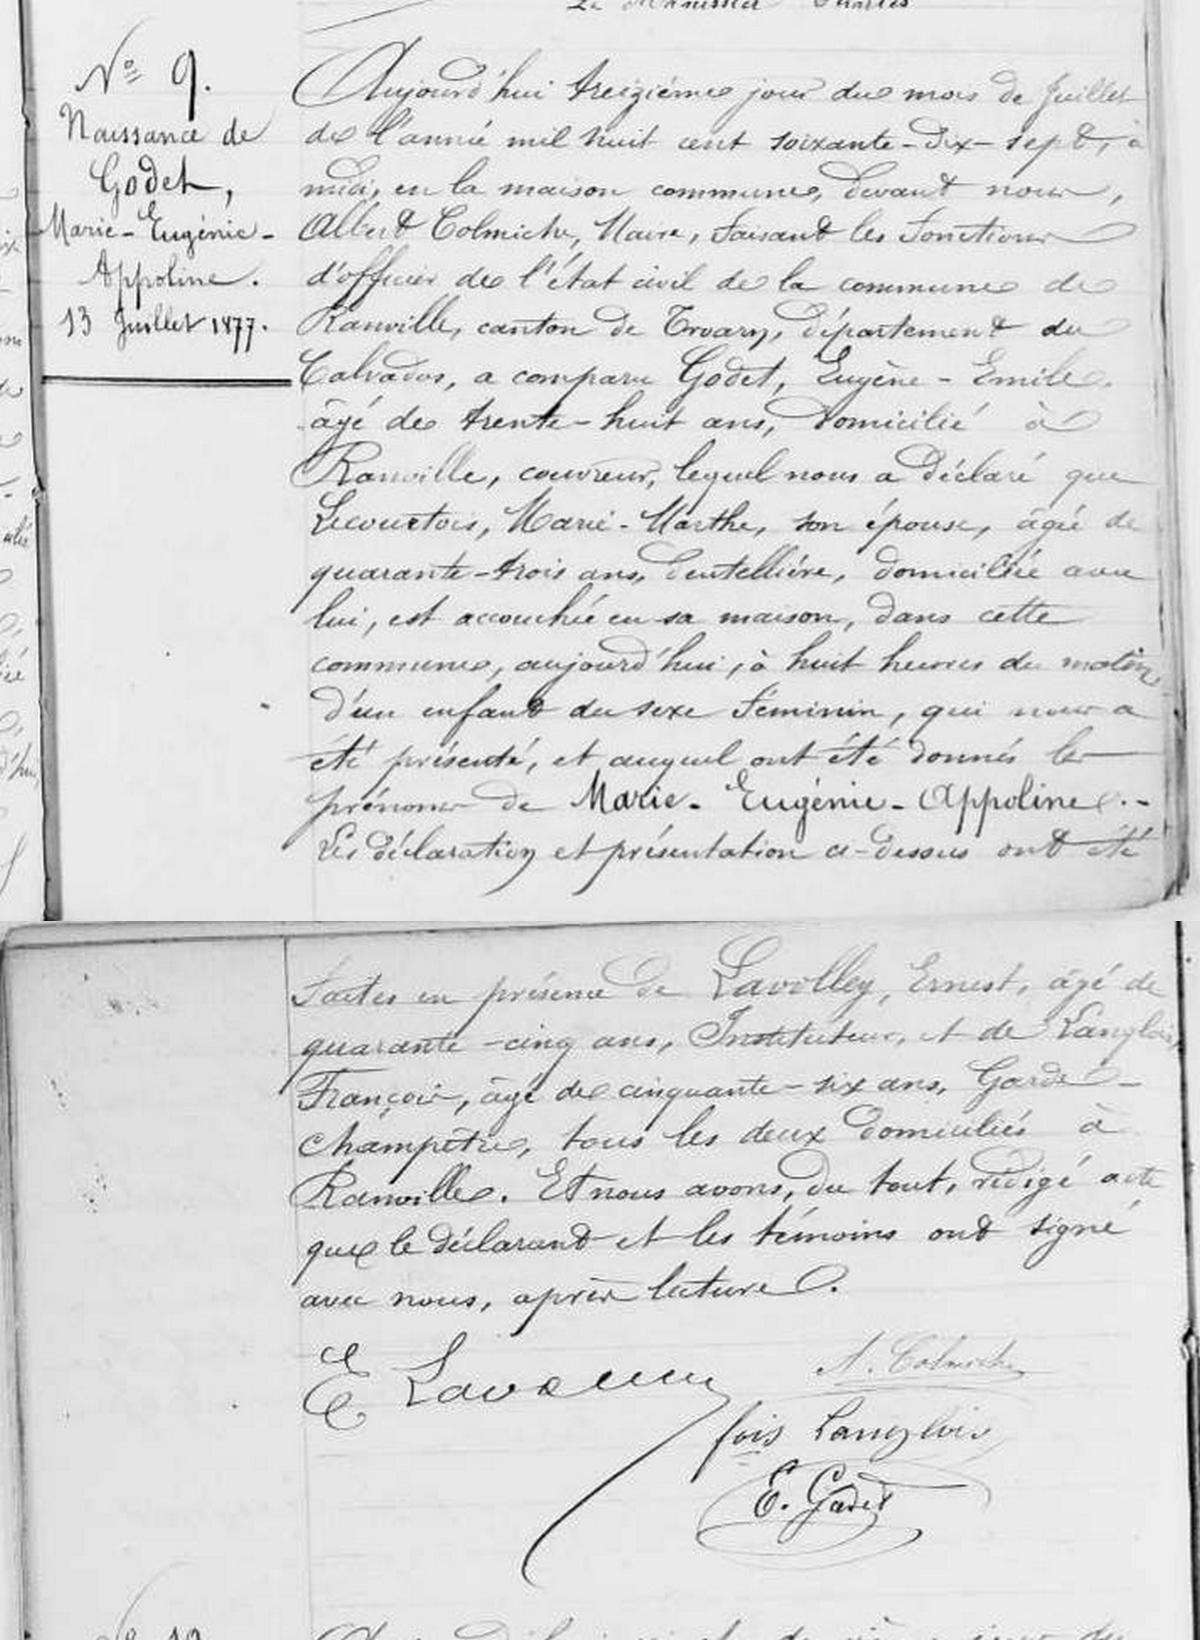 Le Manissier Charles
Nº 9.
Naissance de
Godet,
Marie-Eugénie-
Appoline.
13 Juillet 1877.
Aujourd'hui treizième jour du mois de Juillet
de l'année mil huit cent soixante-dix-sept, à
midi, en la maison commune, devant nous,
Albert Colmiche, Maire, faisant les fonctions
d'officier de l'état civil de la commune de
Ranville, canton de Troarn, département du
Calvados, a comparu Godet, Eugène-Emile
âgé de trente-huit ans, domicilié à
Ranville, couvreur, lequel nous a déclaré que
Lecourtois, Marie-Marthe, son épouse, âgée de
quarante-trois ans, dentellière, domiciliée avec
lui, est accouchée en sa maison, dans cette
commune, aujourd'hui, à huit heures du matin
d'un enfant du sexe féminin, qui nous a
été présenté, et auquel ont été donnés les
prénoms de Marie-Eugénie-Appoline.-
Les déclaration et présentation ci-dessus ont été
faites en présence de Lavolley, Ernest, âgé de
quarante-cinq ans, Instituteur, et de Langlois,
François, âgé de cinquante-six ans, Garde-
Champêtre, tous les deux domiciliés à
Ranville. Et nous avons, du tout, rédigé acte
que le déclarant et les témoins ont signé
avec nous, après lecture.
E Lavolley
A. Colmiche
fois Langlois
E. Godet